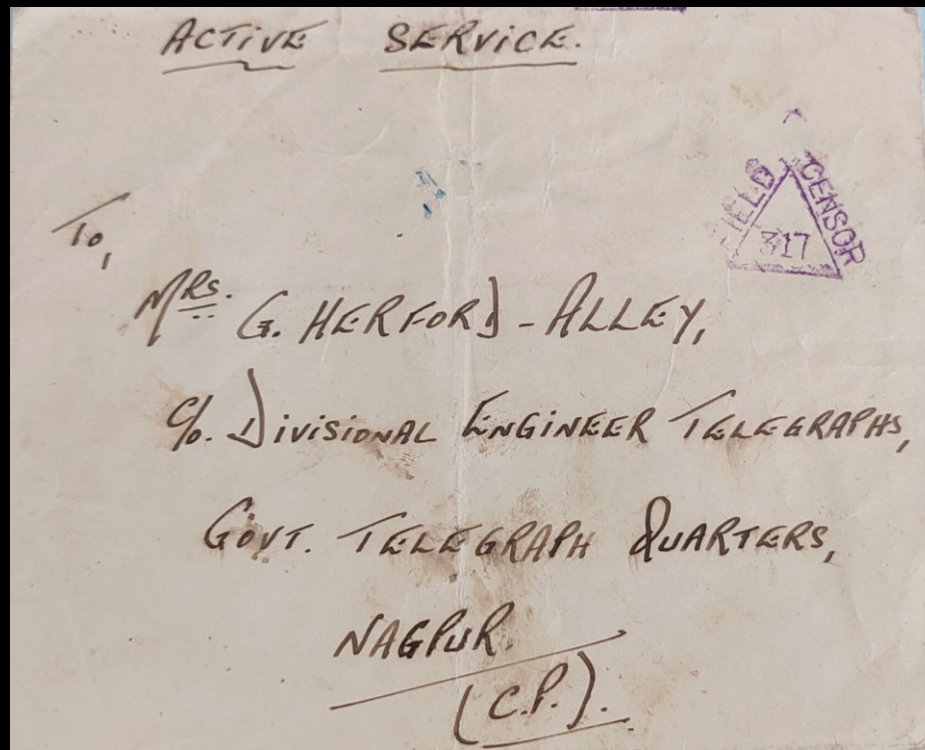 ACTIVE SERVICE.
FIELD CENSOR
317
To,
Mrs. G. HERFORD-ALLEY,
c/o. DIVISIONAL ENGINEER TELEGRAPHS,
GOVT. TELEGRAPH QUARTERS,
NAGPUR.
(C.P.).